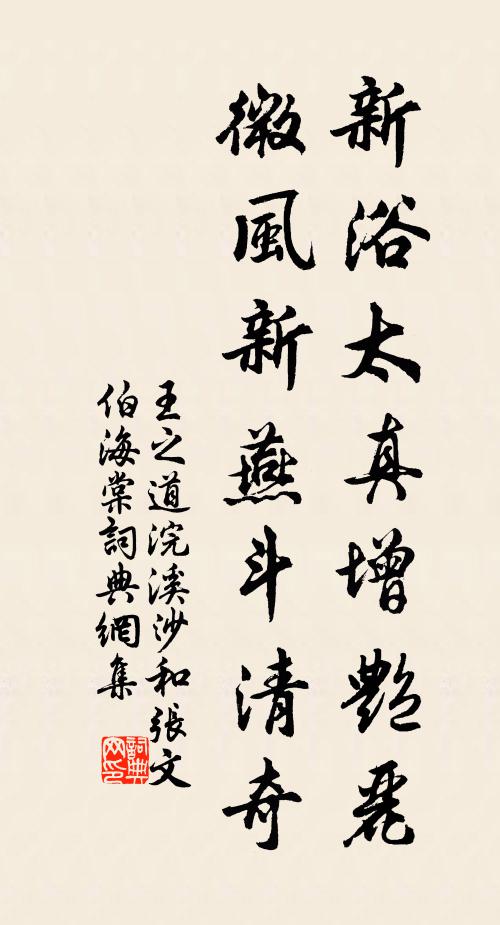 新浴太真增艷麗
微風新燕斗清奇
王之道浣溪沙和張文
伯海棠詞典網集
詞典網印